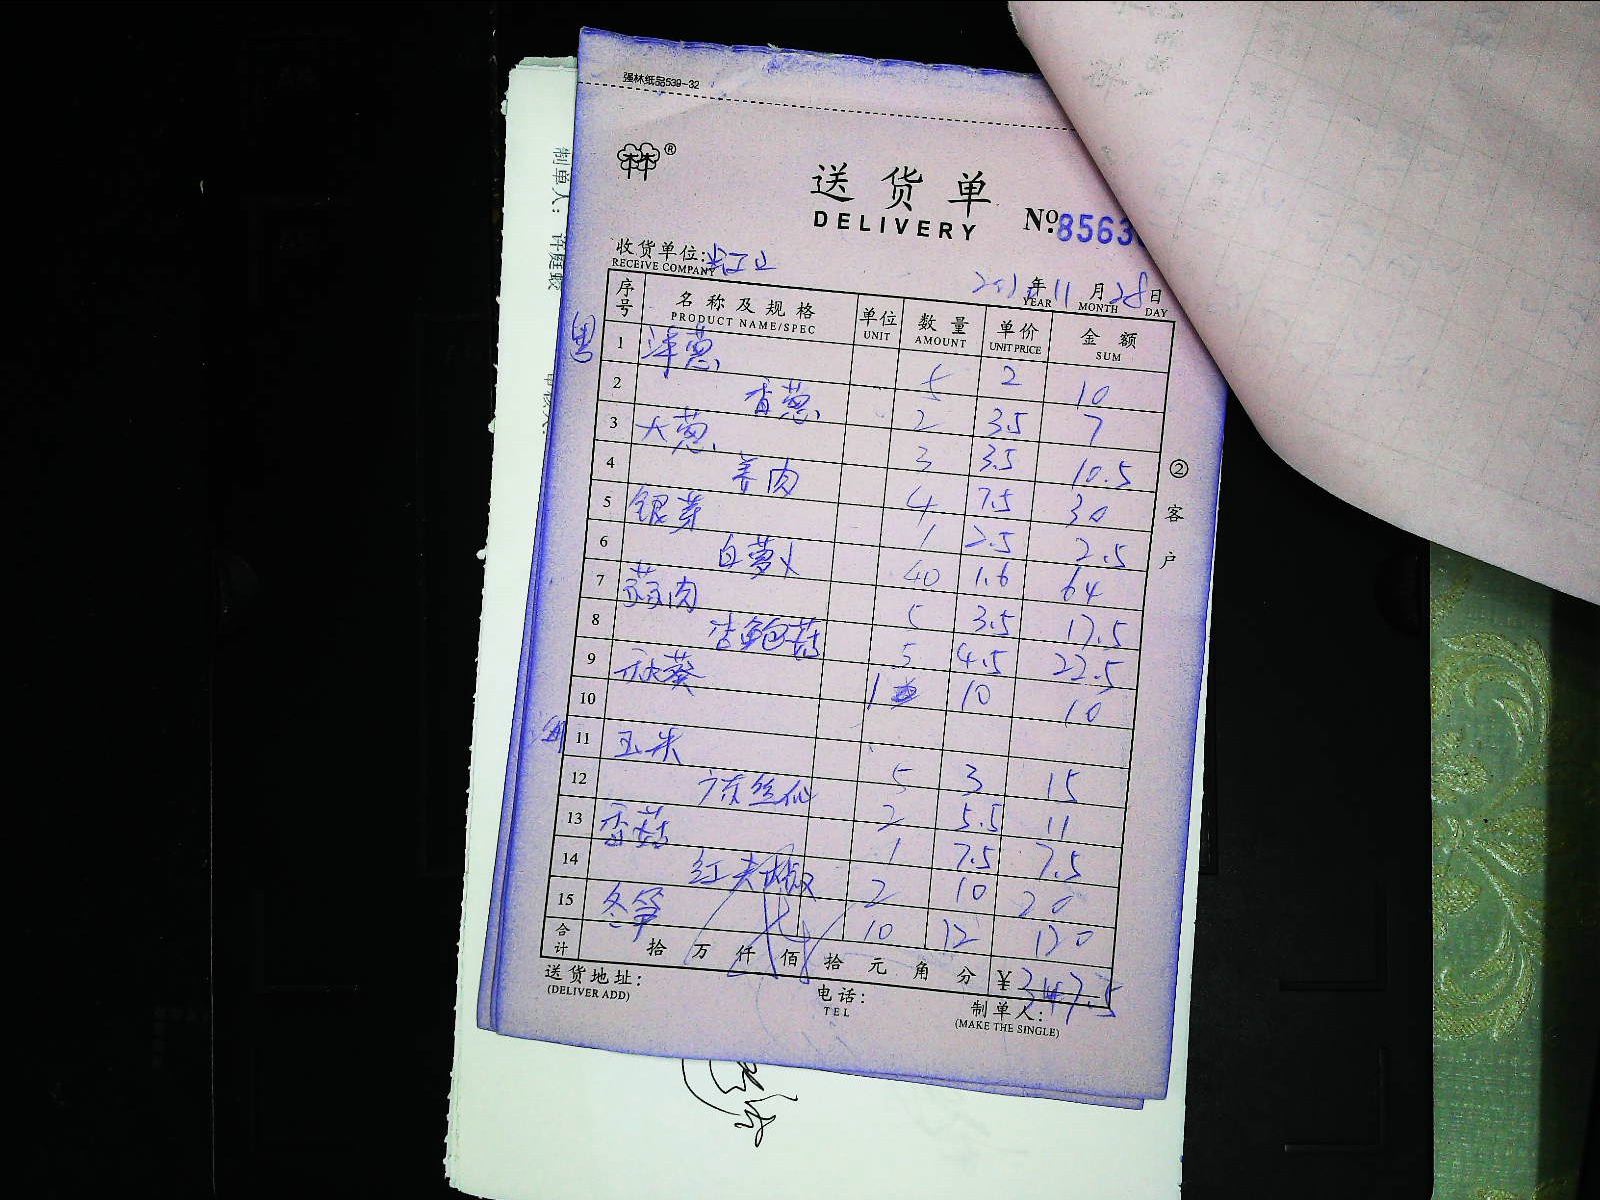 强林纸品539-32
制单人： 许庭蛟
送货单
DELIVERY
No. 8563
收货单位:
RECEIVE COMPANY
年 11 月 28 日
YEAR MONTH DAY
序号 名称及规格 单位 数量 单价 金额
PRODUCT NAME/SPEC UNIT AMOUNT UNIT PRICE SUM
1 洋葱 5 2 10
2 香葱 2 3.5 7
3 大葱 3 3.5 10.5
4 姜肉 4 7.5 30
5 银芽 1 2.5 2.5
6 白萝卜 40 1.6 64
7 蒜肉 5 3.5 17.5
8 杏鲍菇 5 4.5 22.5
9 秋葵 1 10 10
10
11 玉米 5 3 15
12 2 5.5 11
13 香菇 1 7.5 7.5
14 红尖椒 2 10 20
15 冬笋 10 12 120
合计 拾 万 仟 佰 拾 元 角 分 ¥347.5
送货地址:
(DELIVER ADD)
电话:
TEL
制单人:
(MAKE THE SINGLE)
② 客户